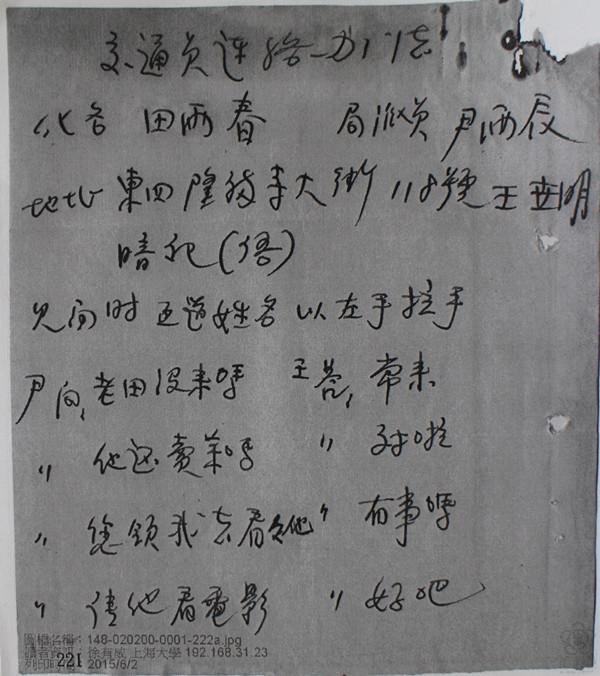 交通员连络办法
化名 田雨春 局派员 尹雨辰
地址 東四隆福寺大街 118號 王世明
暗记(语)
见面时 互道姓名 以左手拉手
尹问,老田没来吗 王答,常来
〃 他还卖菜吗 〃 对啦
〃 您领我去看看他 〃 有事吗
〃 请他看電影 〃 好吧
圖檔名稱:148-020200-0001-222a.jpg
讀者資訊:徐有威 上海大學 192.168.31.23
列印時間:2015/6/2
221